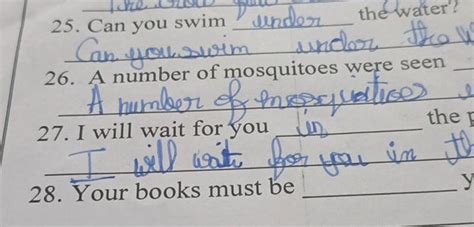 25. Can you swim under the water?
Can you swim under the w
26. A number of mosquitoes were seen
A number of mosquitoes
27. I will wait for you in the p
I will wait for you in th
28. Your books must be y